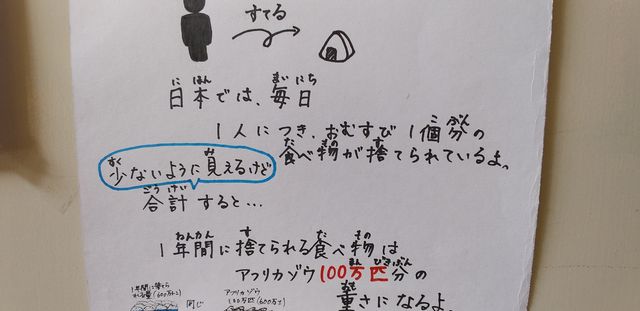 すてる
日本では、毎日
1人につき、おむすび1個分の
食べ物が捨てられているよ。
少ないように見えるけど
合計すると…
1年間に捨てられる食べ物は
アフリカゾウ100万匹分の
重さになるよ。
1年間に捨てら
れる量(600万トン)
同じ
アフリカゾウ
100万匹(600万t)